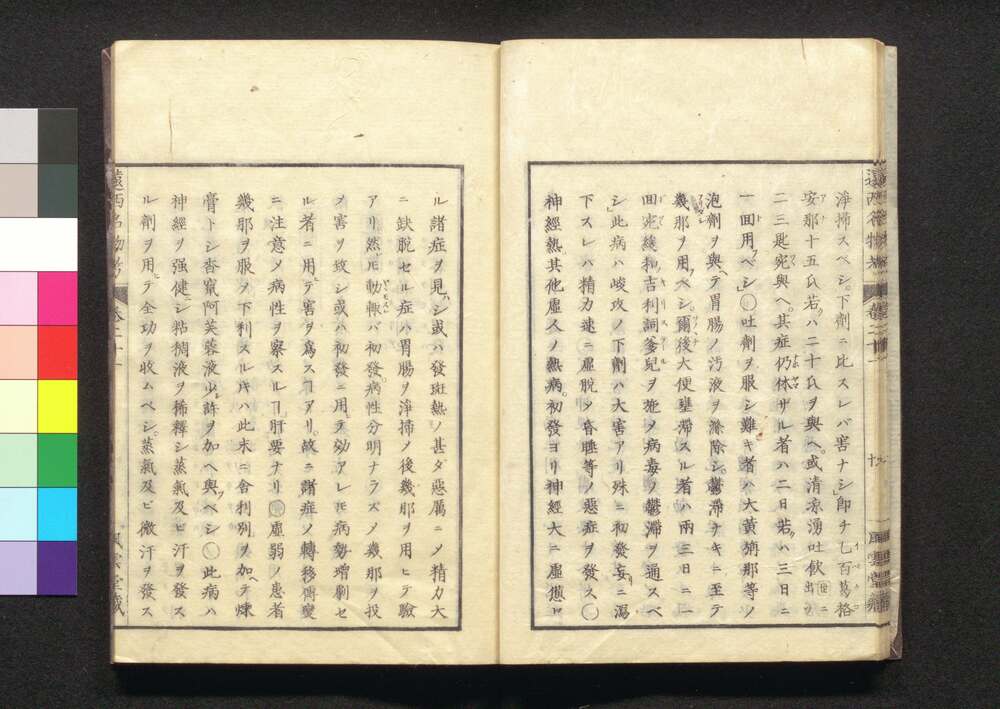 淨掃スベシ。下劑ニ比スレバ害ナシ」即チ乜百葛格
安那十五氏若クハ二十氏ヲ與ヘ。或清涼湧吐飲
二三匙宛與ヘ。其症仍休ザル者ハ二日若クハ三日ニ
一囬用フベシ」○吐劑ヲ服シ難キ者ハ大黃旃那等ノ
泡劑ヲ與ヘテ胃腸ノ汚液ヲ滌除シ。鬱滯ナキニ至テ
幾那ヲ用フベシ。爾後大便壅滯スル者ハ兩三日ニ一
囬宛緩和吉利詞篤兒ヲ施シメ病毒ノ鬱滯ヲ通スベ
シ」此病ハ峻攻ノ下劑ハ大害アリ殊ニ初發妄ニ瀉
下スレバ精力速ニ虛脫シメ昏睡等ノ惡症ヲ發ス○
神經熱。其他虛人ノ熱病。初發ヨリ神經大ニ虛憊シ
ル諸症ヲ見ハシ或ハ發斑熱ノ甚ダ惡厲ニメ精力大
ニ缺脫セル症ハ胃腸ヲ淨掃ノ後幾那ヲ用ヒテ驗
アリ然𪜈動輙バ初發。病性分明ナラズメ幾那ヲ投
メ害ヲ致シ或ハ初發ニ用ヲ効アレ𪜈病勢增劇セ
ル者ニ用ヘテ害ヲ爲スヿアリ。故ニ諸症ノ轉移傳變
ニ注意メ病性ヲ察スルヿ肝要ナリ○虛弱ノ患者
幾那ヲ服メ下利スル𪜈ハ此末ニ舍利別ヲ加ヘテ煉
膏トシ杳竄阿芙蓉液少許ヲ加ヘ與フベシ○此病ハ
神經ヲ强健ニシ粘稠液ヲ稀釋シ蒸氣及ビ汗ヲ發ス
ル劑ヲ用ヒテ全功ヲ收ムベシ。蒸氣及ビ微汗ヲ發ス
遠西名物考
卷二十一
風雲堂藏